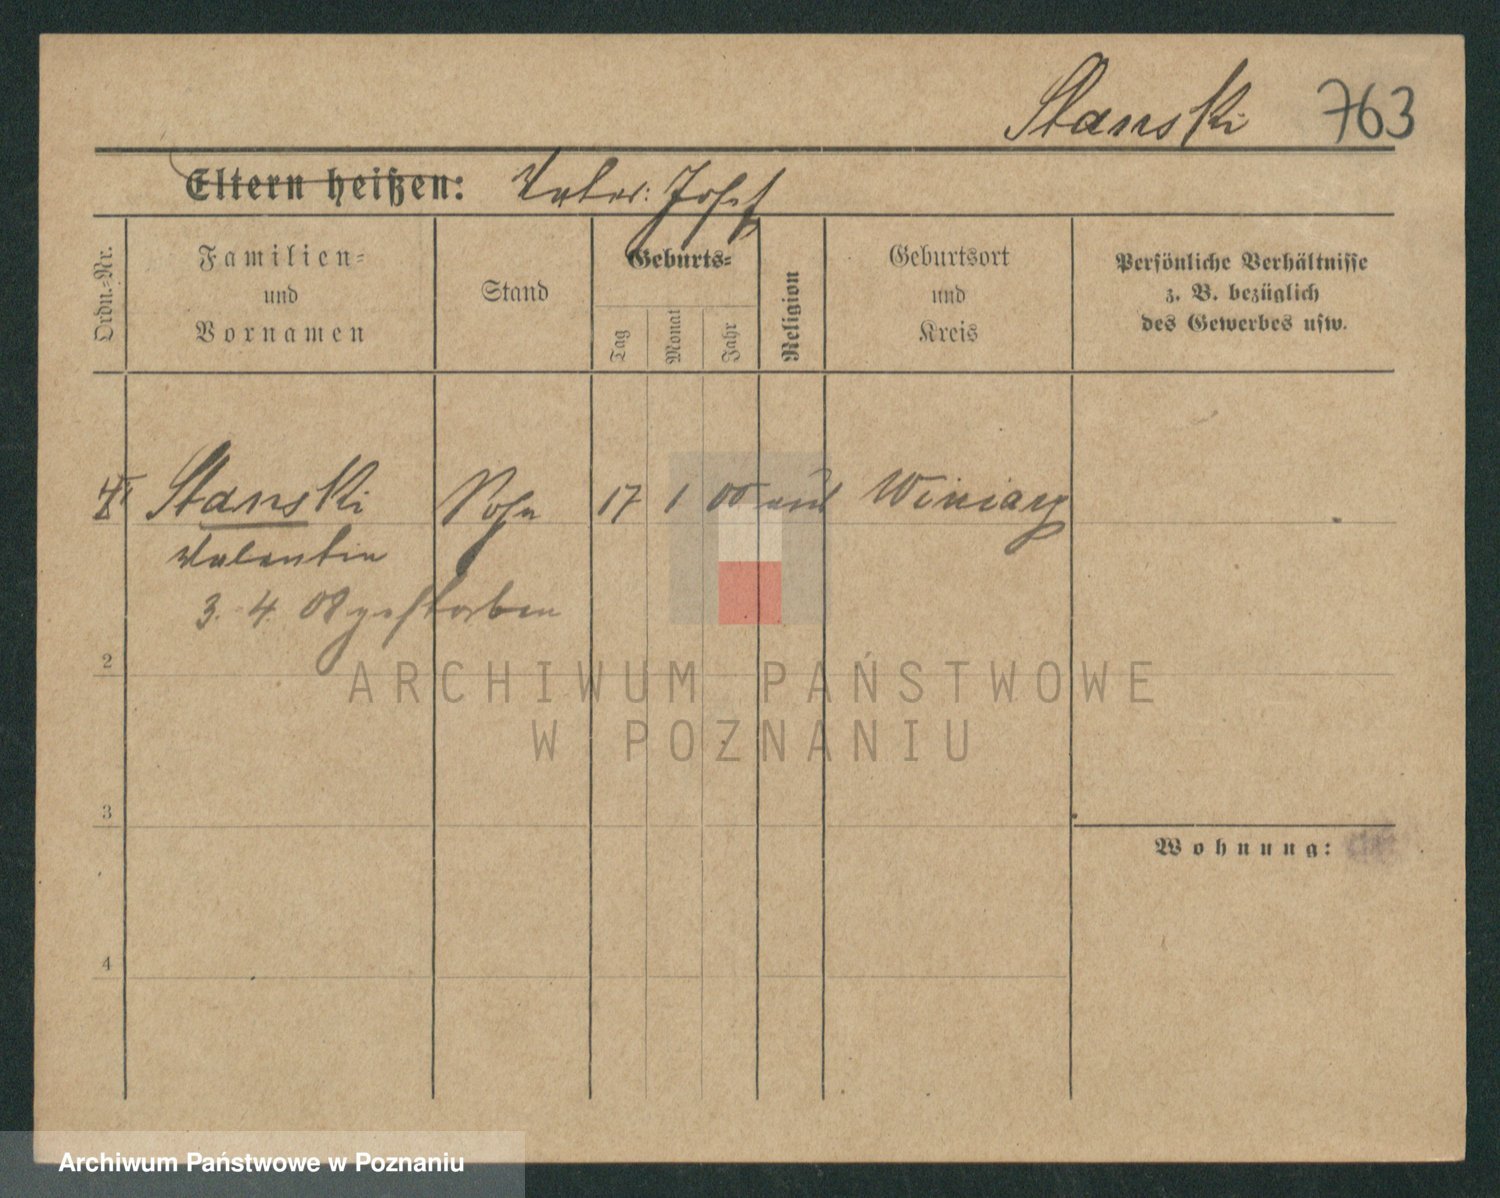 Stanski 763
Eltern heißen: Vater: Josef
Ordn.-Nr.
Familien-
und
Vornamen
Stand
Geburts-
Tag
Monat
Jahr
Religion
Geburtsort
und
Kreis
Persönliche Verhältnisse
z. B. bezüglich
des Gewerbes usw.
Stanski Sohn 17 1 00 Winiary
Valentin
3. 4. 08 gestorben
2
ARCHIWUM PAŃSTWOWE
W POZNANIU
3
Wohnung:
4
Archiwum Państwowe w Poznaniu